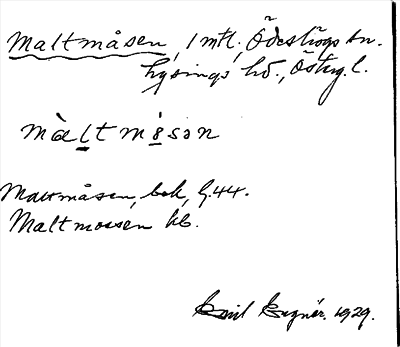 Maltmåsen, 1 mtl., Ödeshögs sn.
Lysings hd., Österg. l.
màltmósən
Maltmåsen, bek, G.44.
Maltmossen kb.
Emil Hagnér. 1929.